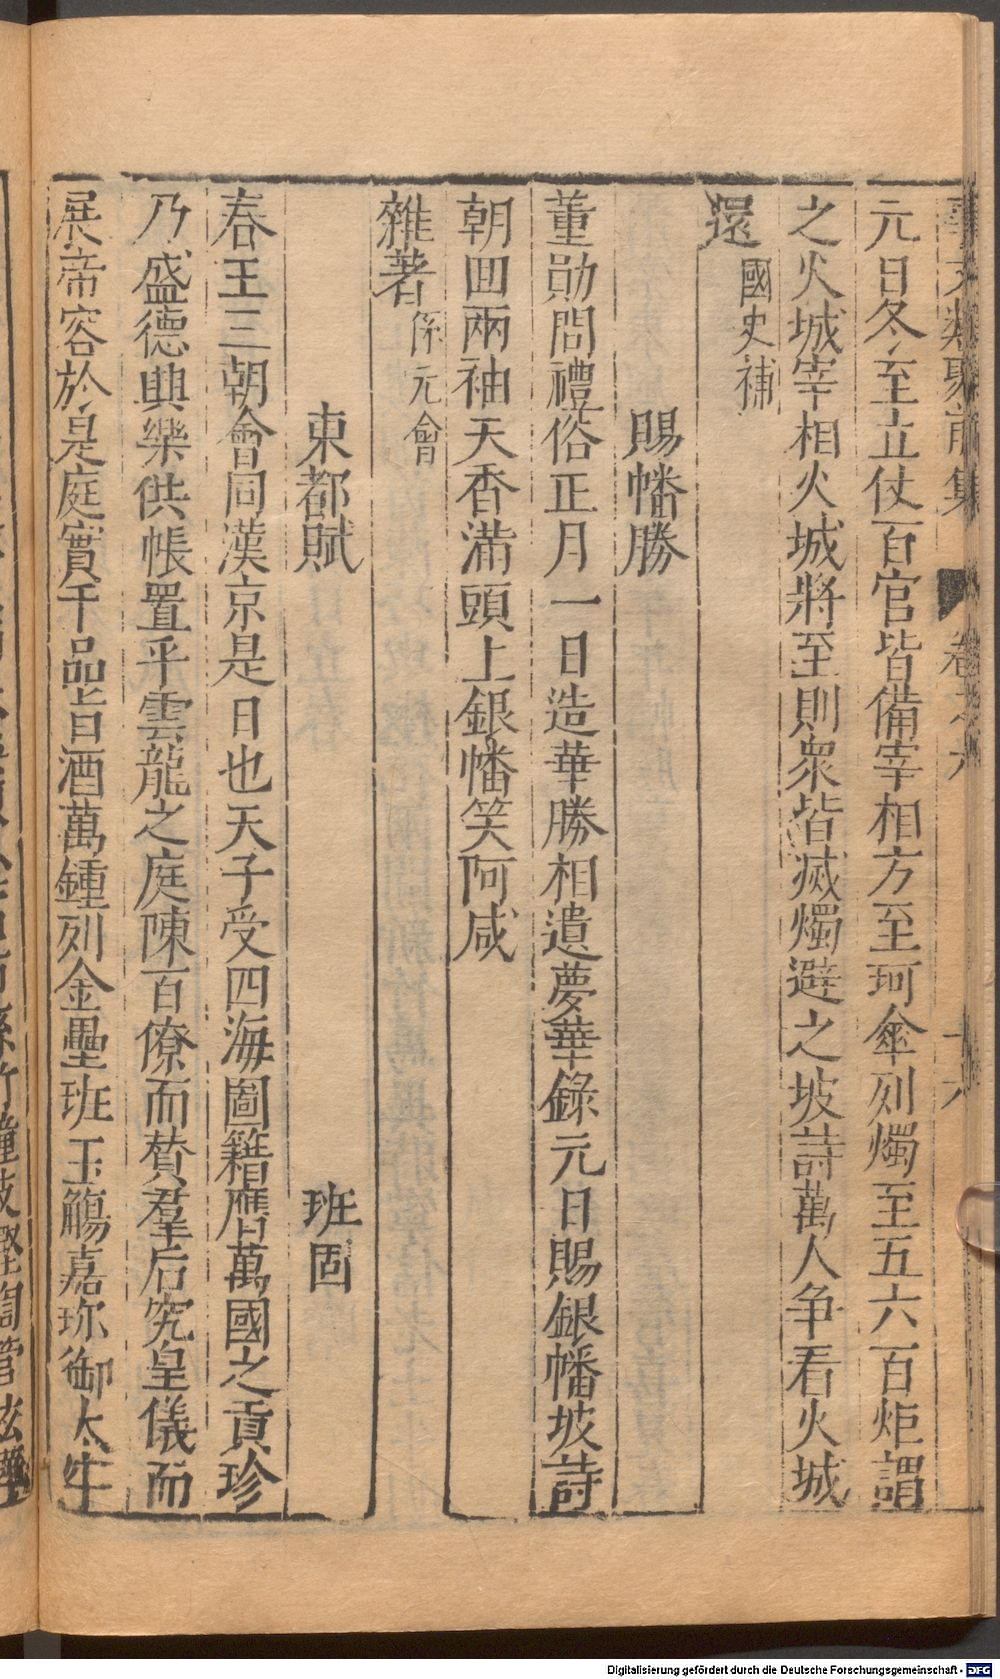 事文類聚前集 卷之六 十六
元日冬至立仗百官皆備宰相方至珂傘列燭至五六百炬謂
之火城宰相火城將至則衆皆滅燭避之坡詩萬人争看火城
還 國史補
賜幡勝
董勛問禮俗正月一日造華勝相遺夢華錄元日賜銀幡坡詩
朝囬兩袖天香滿頭上銀幡笑阿咸
雜著 係元會
東都賦 班固
春王三朝會同漢京是日也天子受四海圖籍膺萬國之貢珍
乃盛德興樂供帳置乎雲龍之庭陳百僚而賛羣后究皇儀而
展帝容於是庭實千品旨酒萬鍾列金罍班玉觴嘉珎御太牛
Digitalisierung gefördert durch die Deutsche Forschungsgemeinschaft - DFG